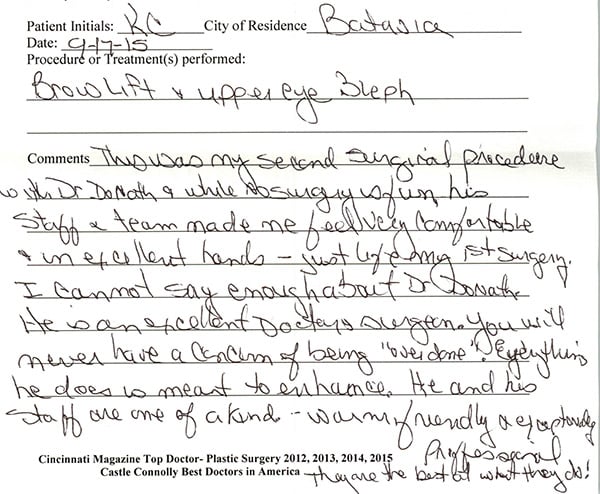 Patient Initials: KC City of Residence Batavia
Date: 9-17-15
Procedure or Treatment(s) performed:
Brow Lift & upper eye Bleph
Comments This was my second surgical procedure
with Dr Donath & while no surgery is fun, his
staff & team made me feel very comfortable
& in excellent hands - just like my 1st surgery.
I cannot say enough about Dr Donath.
He is an excellent Doctor & surgeon. You will
never have a concern of being "over done". Everything
he does is meant to enhance. He and his
staff are one of a kind - warm, friendly & exceptionally
Professional
Cincinnati Magazine Top Doctor- Plastic Surgery 2012, 2013, 2014, 2015
Castle Connolly Best Doctors in America They are the best at what they do!